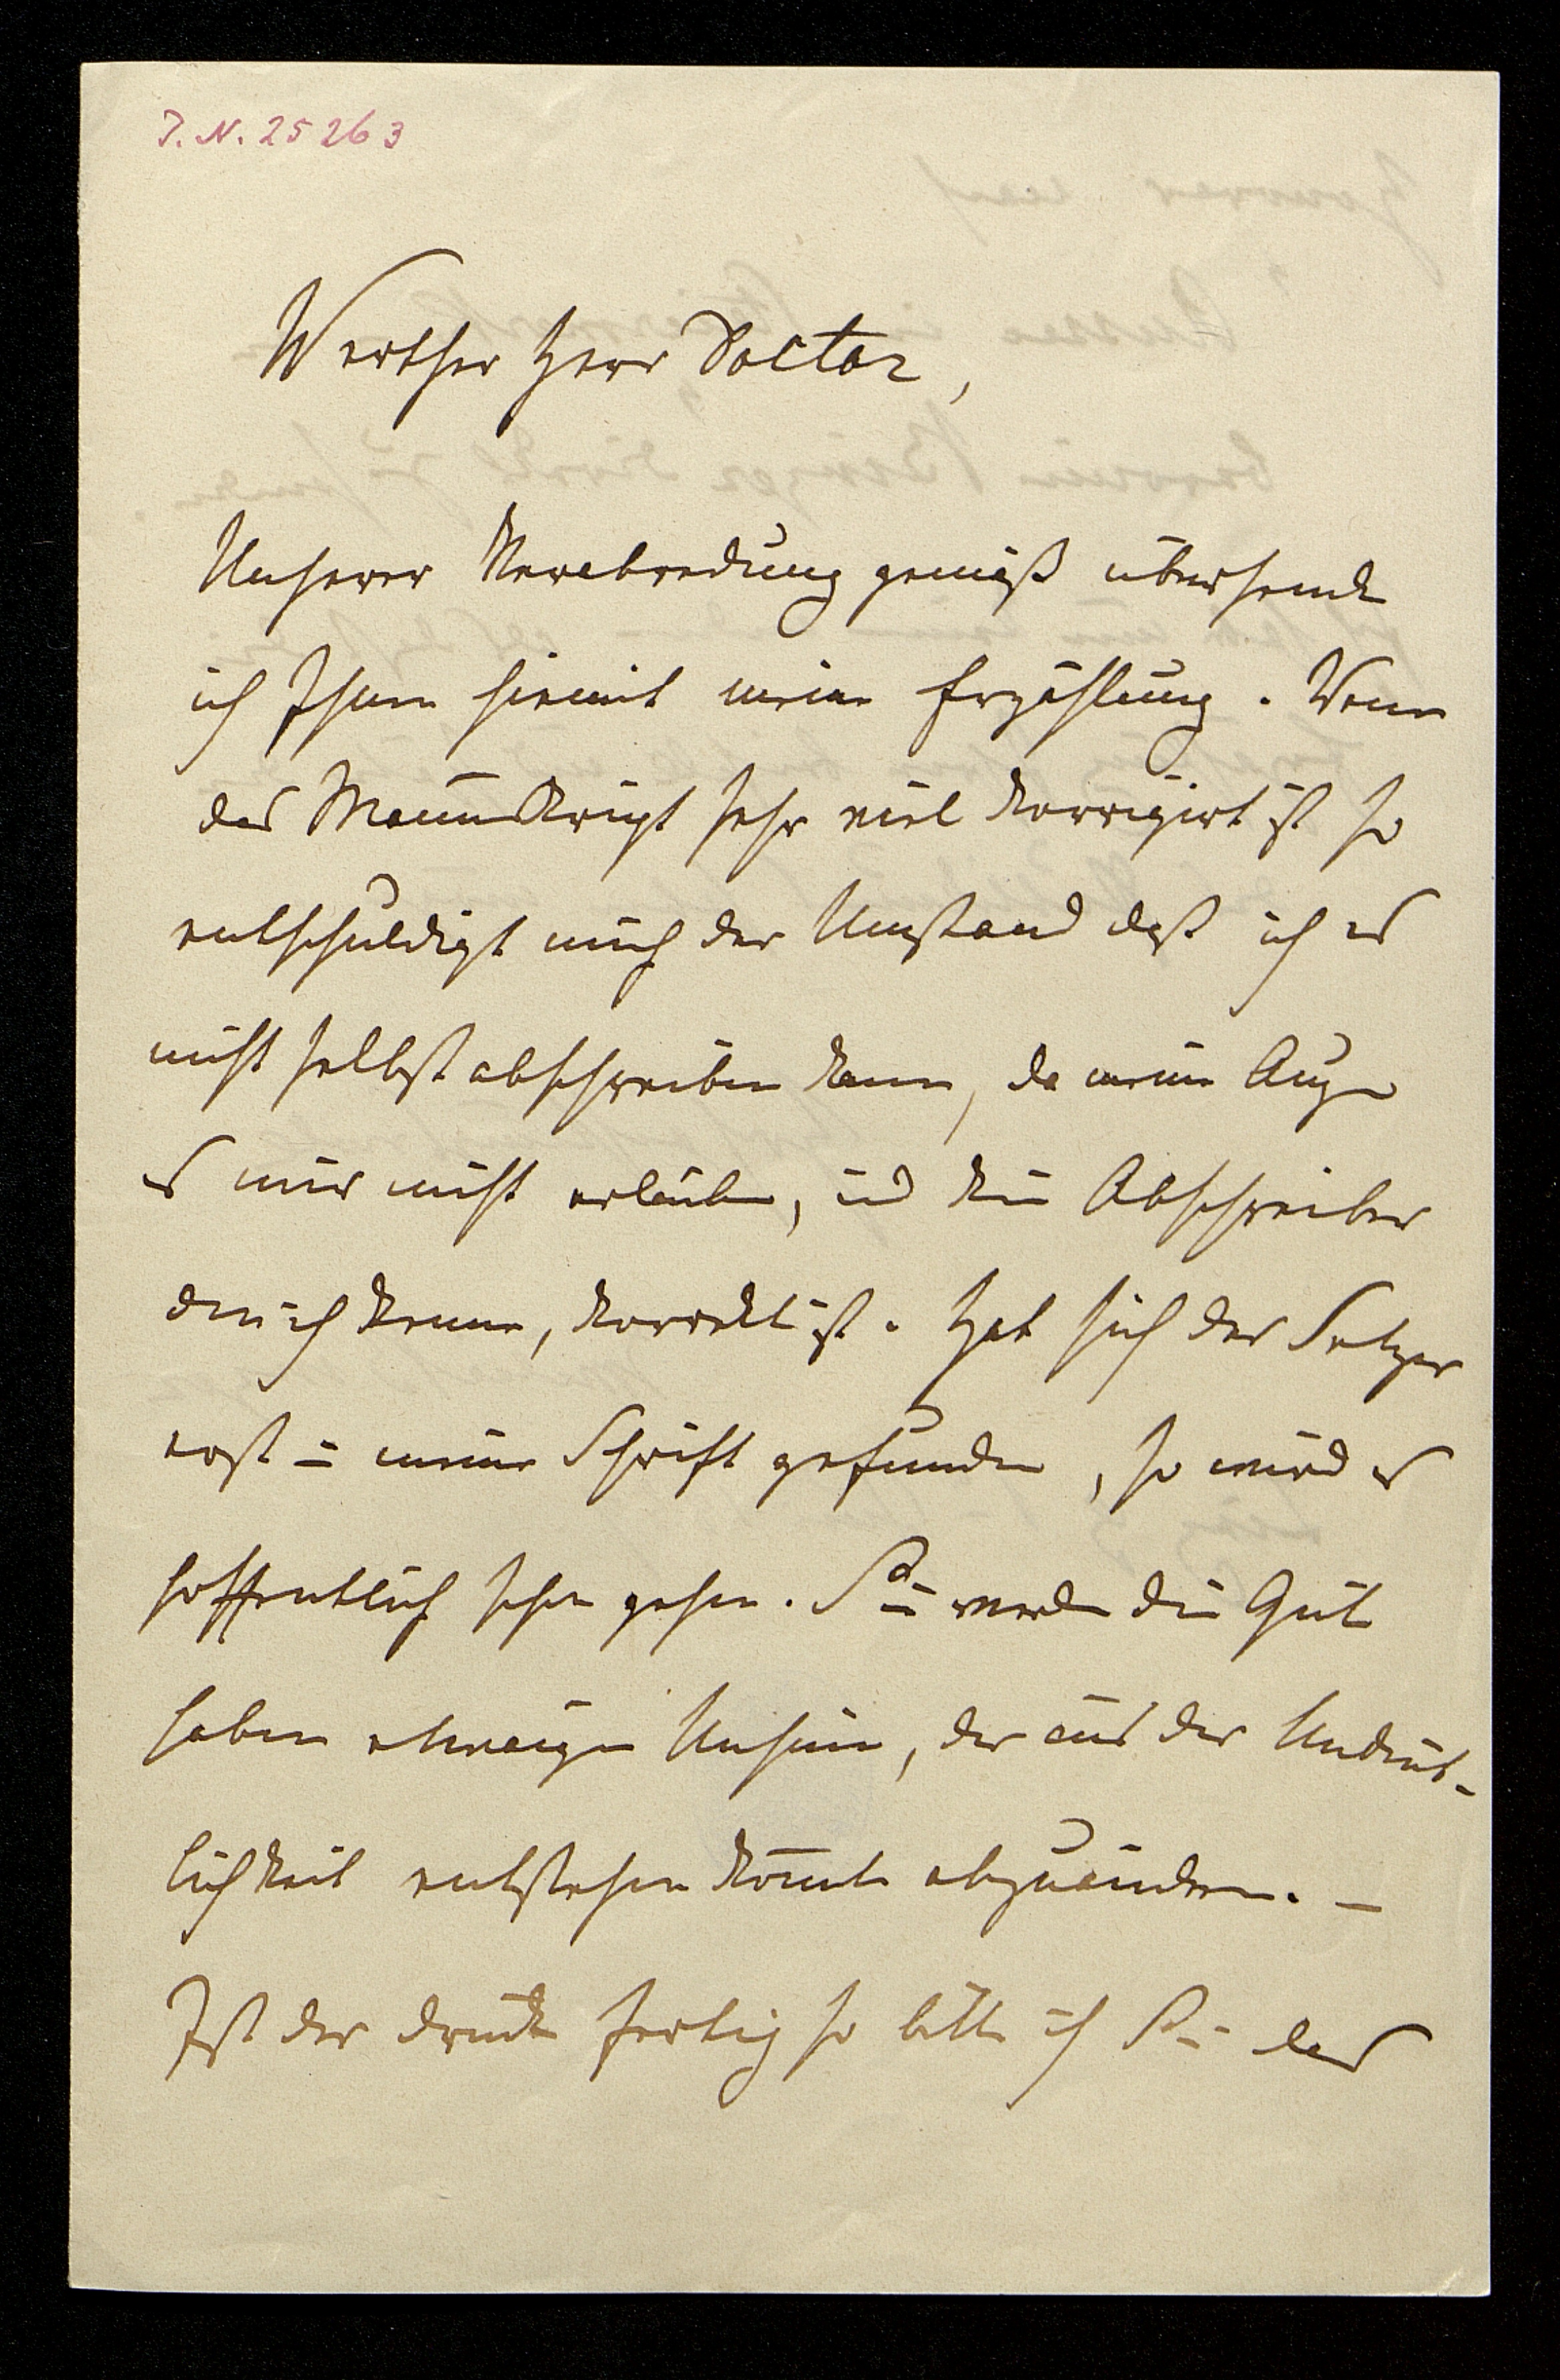 J. N. 25263
Werther Herr Doctor,
Unserer Verabredung gemäß übersende
ich Ihnen hiemit meine Erzählung. Wenn
das Manuskript sehr viel korrigirt ist so
entschuldigt mich der Umstand daß ich es
nicht selbst abschreiben kann, da meine Augen
es mir nicht erlauben, und kein Abschreiber
den ich kenne, korrekt ist. Hat sich der Setzer
erst in meine Schrift gefunden, so wird es
hoffentlich schon gehen. Sie werden die Güte
haben etwaigen Unsinn, der aus der Undeut-
lichkeit entstehen könnte abzuändern. –
Ist der Druck fertig so bitte ich Sie das